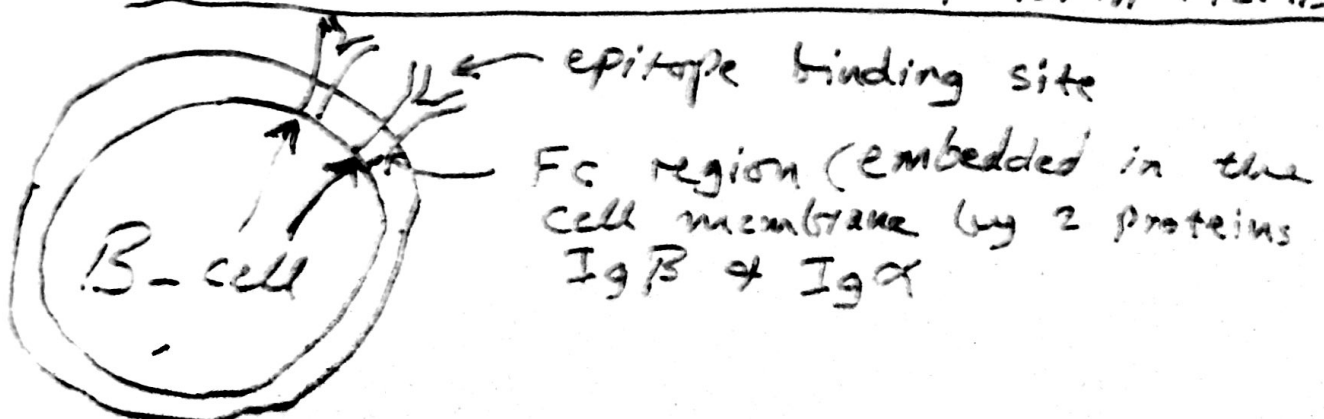 epitope binding site
Fc region (embedded in the
cell membrane by 2 proteins
B-cell
IgB & Igα